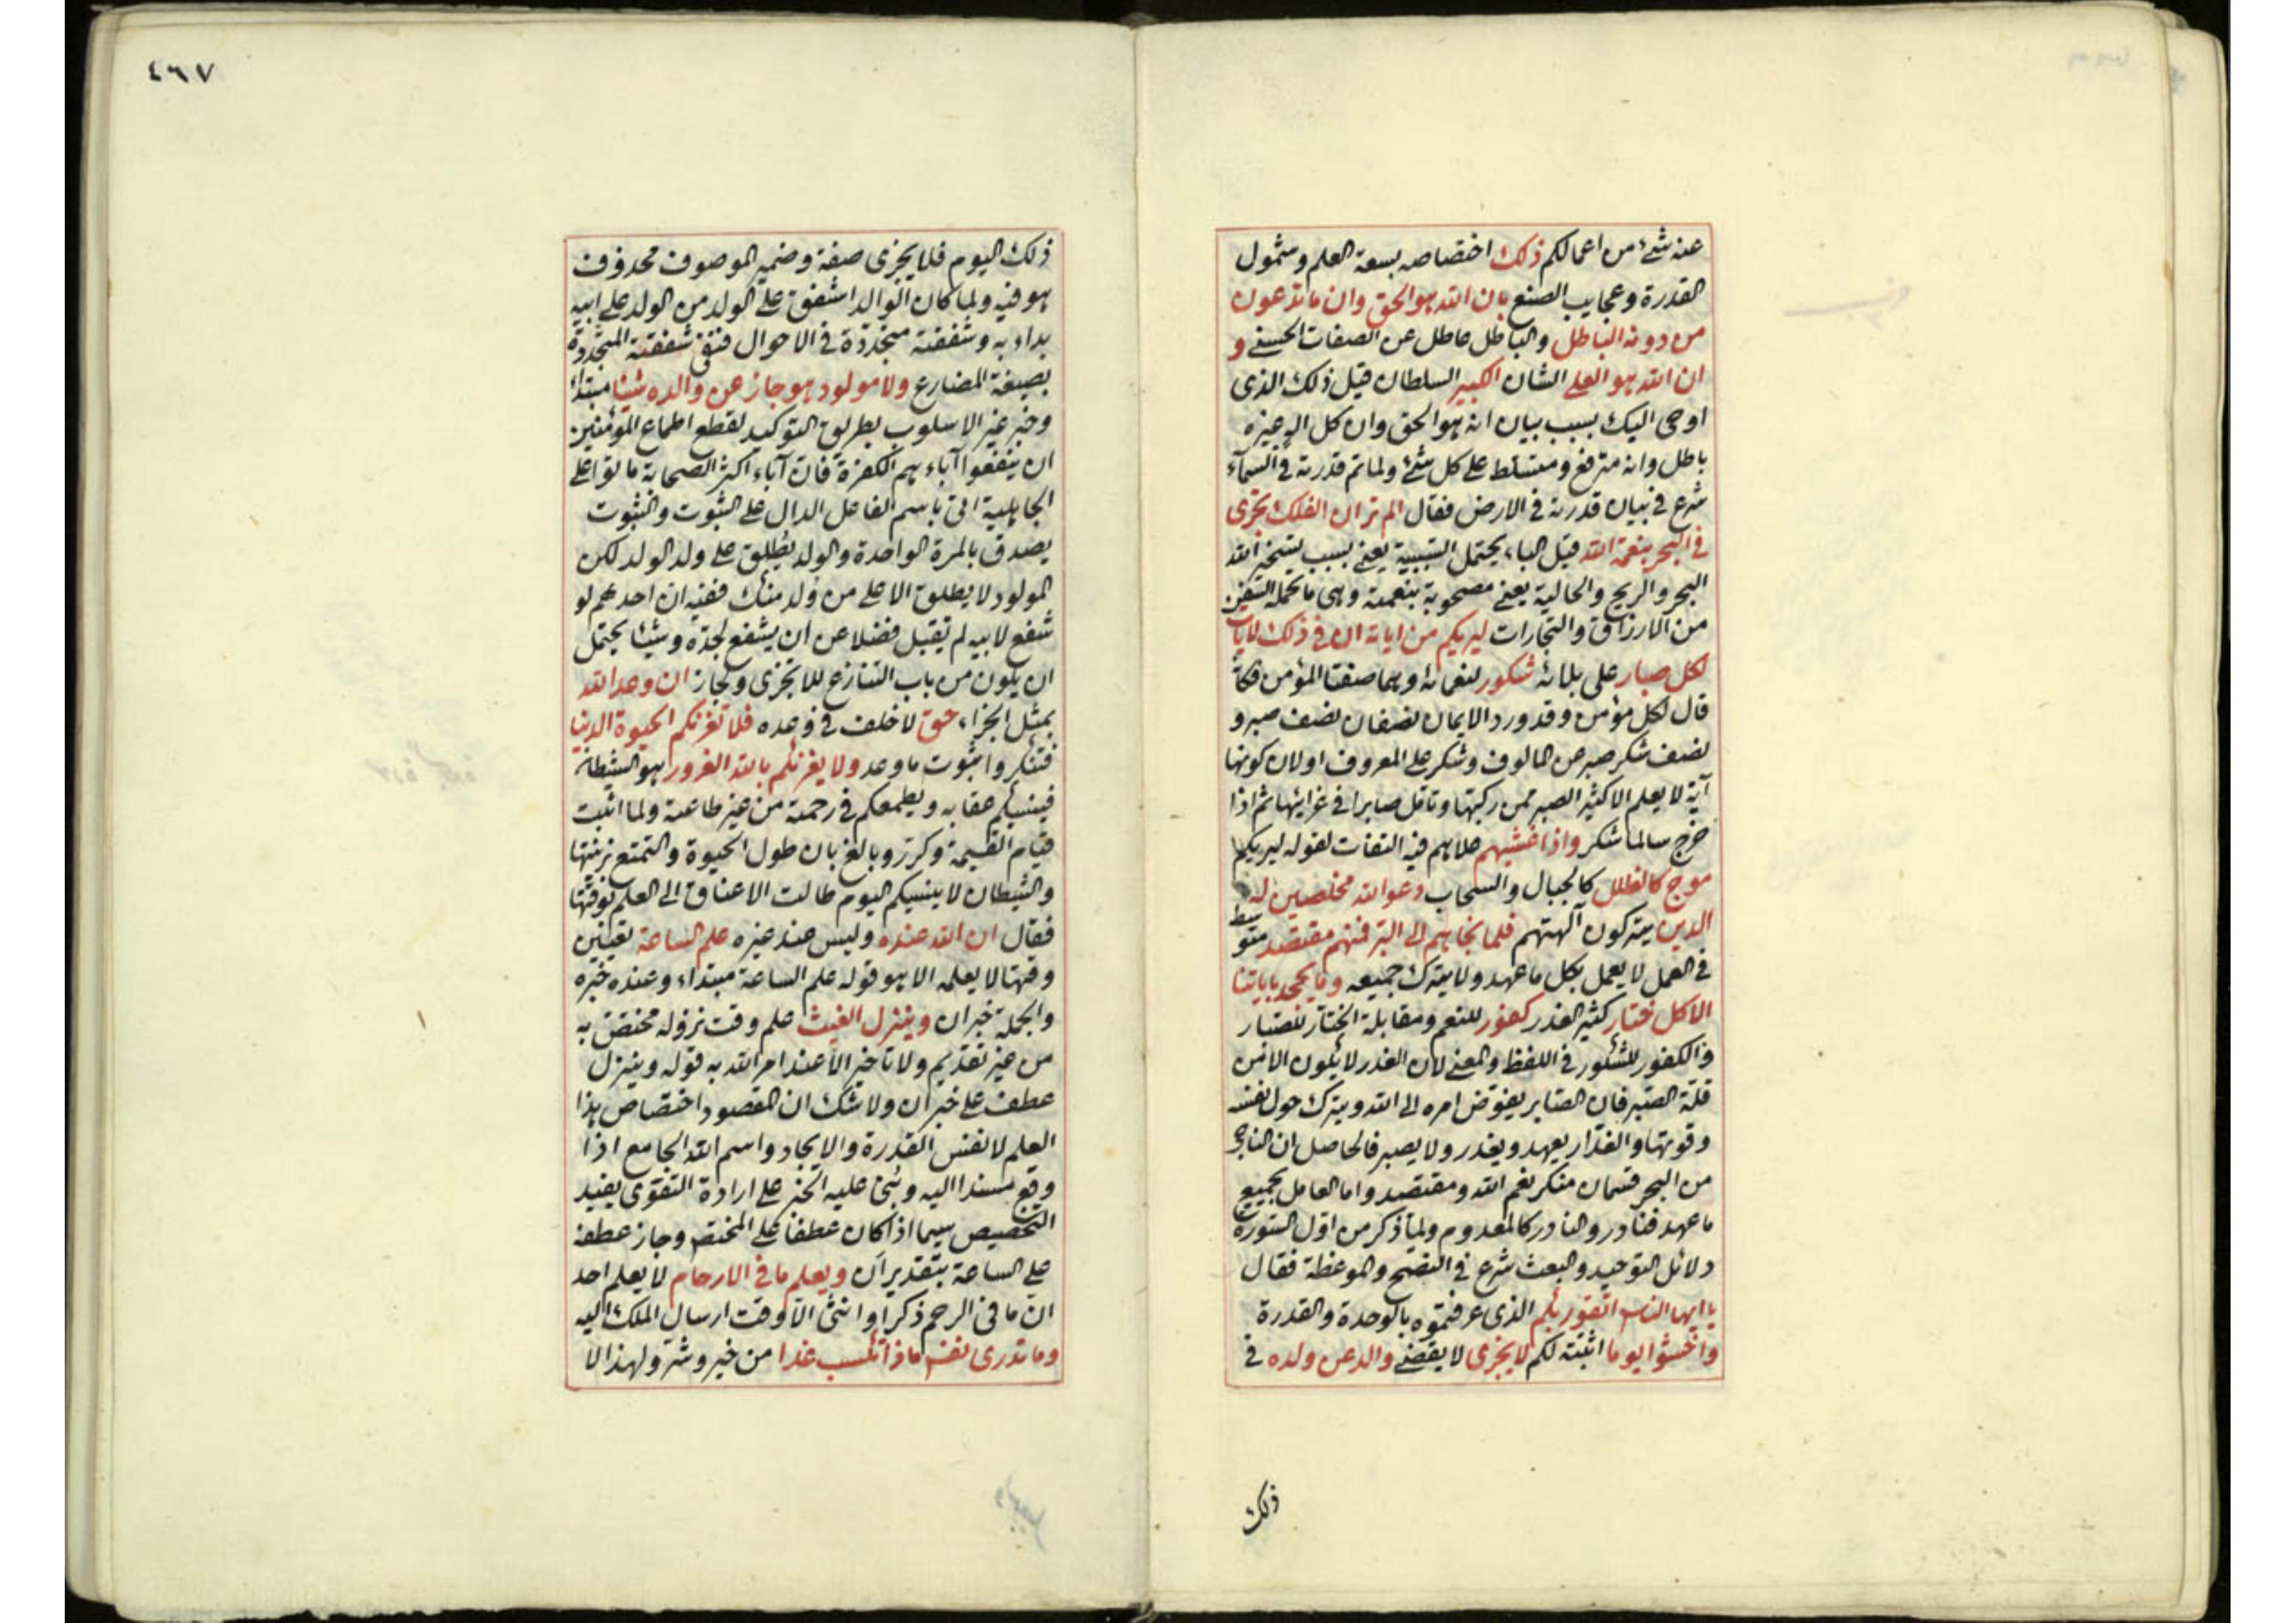 عنه شئ من اعمالكم ذلك اختصاصه بسعة العلم وشمول
القدرة وعجايب الصنع بان الله هو الحق وان ما تدعون
من دونه الباطل والباطل عاطل عن الصفات الحسنى و
ان الله هو العلى الشان الكبير السلطان قيل ذلك الذى
اوحى اليك بسبب بيان انه هو الحق وان كل اله غيره
باطل وانه مترفع ومتسلط على كل شئ ولما تم قدرته فى السمآء
شرع فى بيان قدرته فى الارض فقال الم تر ان الفلك تجرى
فى البحر بنعمة الله قيل الباء يحتمل السببية يعنى بسبب تسخير الله
البحر والريح والحالية يعنى مصحوبة بنعمته وهى ما تحمله السفن
من الارزاق والتجارات ليريكم من اياته ان فى ذلك لايات
لكل صبار على بلائه شكور لنعمائه وهما صفتا المؤمن فكانه
قال لكل مؤمن وقد ورد الايمان نصفان نصف صبر و
نصف شكر صبر عن المالوف وشكر على المعروف اولان كونها
آية لا يعلم الا كثير الصبر ممن ركبتها وتاقل صابرا فى غرايبها ثم اذا
خرج سالما شكر واذا غشيهم علاهم فيه التفات لقوله ليريكم
موج كالظلل كالجبال والسحاب دعوا الله مخلصين له
الدين يتركون آلهتهم فلما نجاهم الى البر فمنهم مقتصد متوسط
فى العمل لا يعمل بكل ما عهد ولا يترك جميعه وما يجحد باياتنا
الا كل ختار كثير الغدر كفور للنعم ومقابلة الختار للصبار
والكفور للشكور فى اللفظ والمعنى لان الغدر لا يكون الا من
قلة الصبر فان الصابر يفوض امره الى الله ويترك حول نفسه
وقوتها والغدار يعهد ويغدر ولا يصبر فالحاصل ان الناجى
من البحر قسمان منكر نعم الله ومقتصد واما العامل بجميع
ما عهد فنادر والنادر كالمعدوم ولما ذكر من اول السورة
دلائل التوحيد والبعث شرع فى النصح والموعظة فقال
يا ايها الناس اتقوا ربكم الذى عرفتموه بالوحدة والقدرة
واخشوا يوما اثبته لكم لا يجزى لا يقضى والد عن ولده فى
ذلك
٤٦٧
ذلك اليوم فلا يجزى صفة وضمير الموصوف محذوف
هو فيه ولما كان الوالد اشفق على الولد من الولد على ابيه
بداء به وشفقته متجددة فى الاحوال فنفى شفقته المتجددة
بصيغة المضارع ولا مولود هو جاز عن والده شيئا مبتداء
وخبر غير الاسلوب بطريق التوكيد لقطع اطماع المؤمنين
ان ينفعوا آباءهم الكفرة فان آباء اكثر الصحابة ماتوا على
الجاهلية اتى باسم الفاعل الدال على الثبوت والثبوت
يصدق بالمرة الواحدة والولد يطلق على ولد الولد لكن
المولود لا يطلق الا على من ولد منك ففيه ان احدهم لو
شفع لابيه لم تقبل فضلا عن ان يشفع لجده وشيئا يحتمل
ان يكون من باب التنازع للا يجزى ولجاز ان وعد الله
بمثل الجزاء حق لا خلف فى وعده فلا تغرنكم الحيوة الدنيا
فتنكروا ثبوت ما وعد ولا يغرنكم بالله الغرور هو الشيطان
فينسيكم عقابه ويطمعكم فى رحمته من غير طاعته ولما اثبت
قيام القيمة وكرر وبالغ بان طول الحيوة والتمتع بزينتها
والشيطان لا ينسيكم اليوم طالت الاعناق الى العلم بوقتها
فقال ان الله عنده وليس عند غيره علم الساعة تعيين
وقتها لا يعلمه الا هو قوله علم الساعة مبتداء وعنده خبره
والجملة خبر ان وينزل الغيث علم وقت نزوله مختص به
من غير تقديم ولا تاخير الا عند امر الله به قوله وينزل
عطف على خبر ان ولا شك ان المقصود اختصاص هذا
العلم لا نفس القدرة والايجاد واسم الله الجامع اذا
وقع مسندا اليه وبنى عليه الخبر على ارادة التقوى يفيد
التخصيص سيما اذا كان عطفا على المختص وجاز عطفه
على الساعة بتقدير ان ويعلم ما فى الارحام لا يعلم احد
ان ما فى الرحم ذكر او انثى الا وقت ارسال الملك اليه
وما تدرى نفس ماذا تكسب غدا من خير وشر ولهذا لا